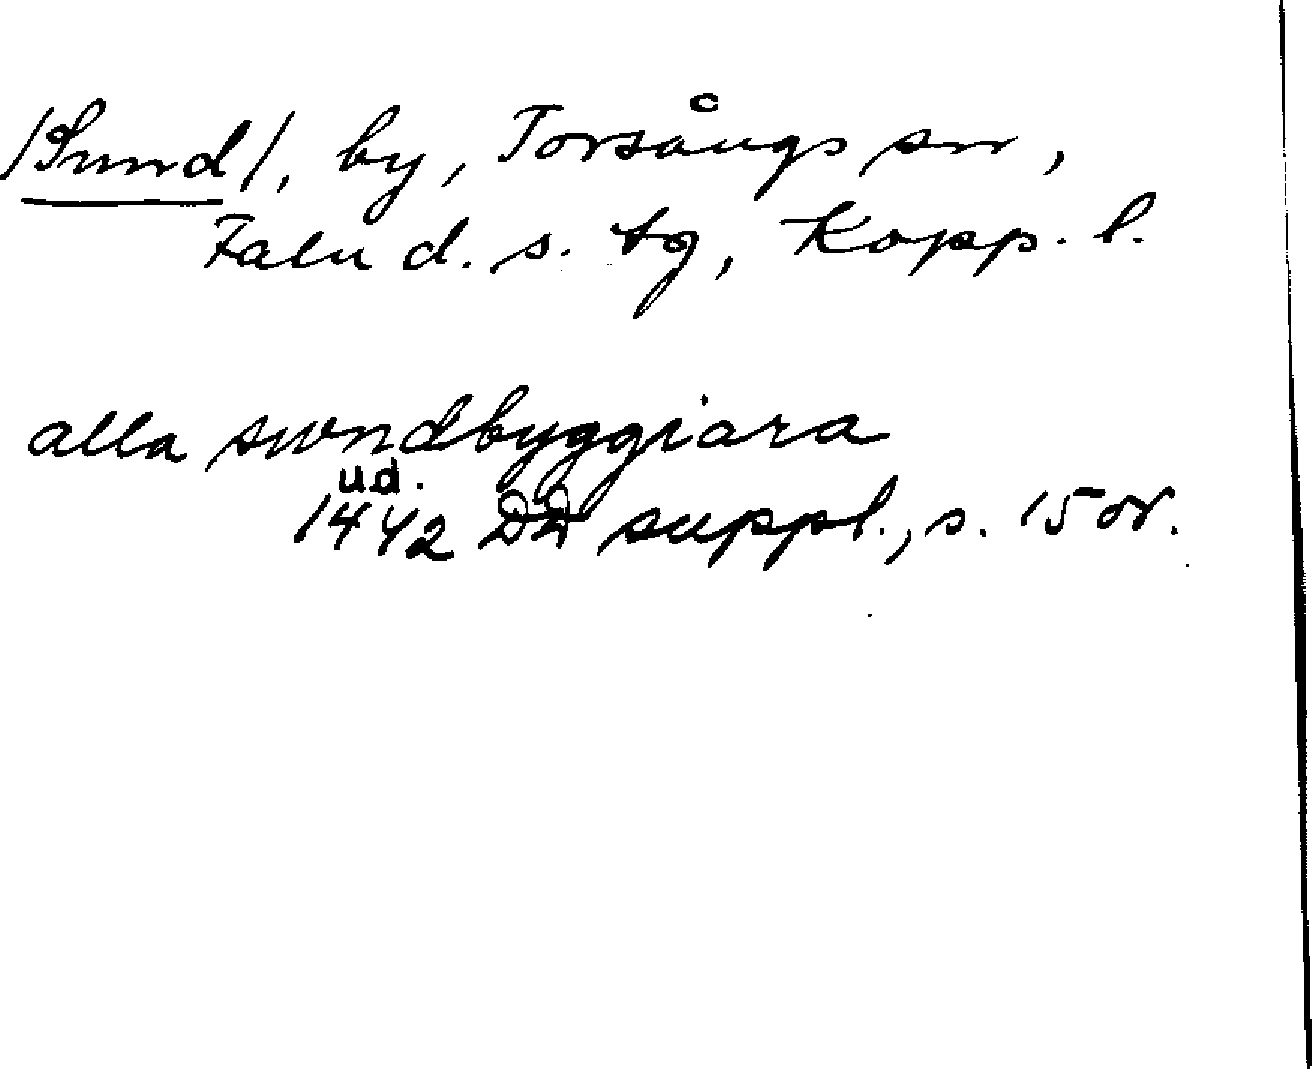 /Sund/, by, Torsångs sn,
Falu d. s. tg, Kopp. l.
alla swndbyggiara
ud.
1442 DD suppl., s. 150r.